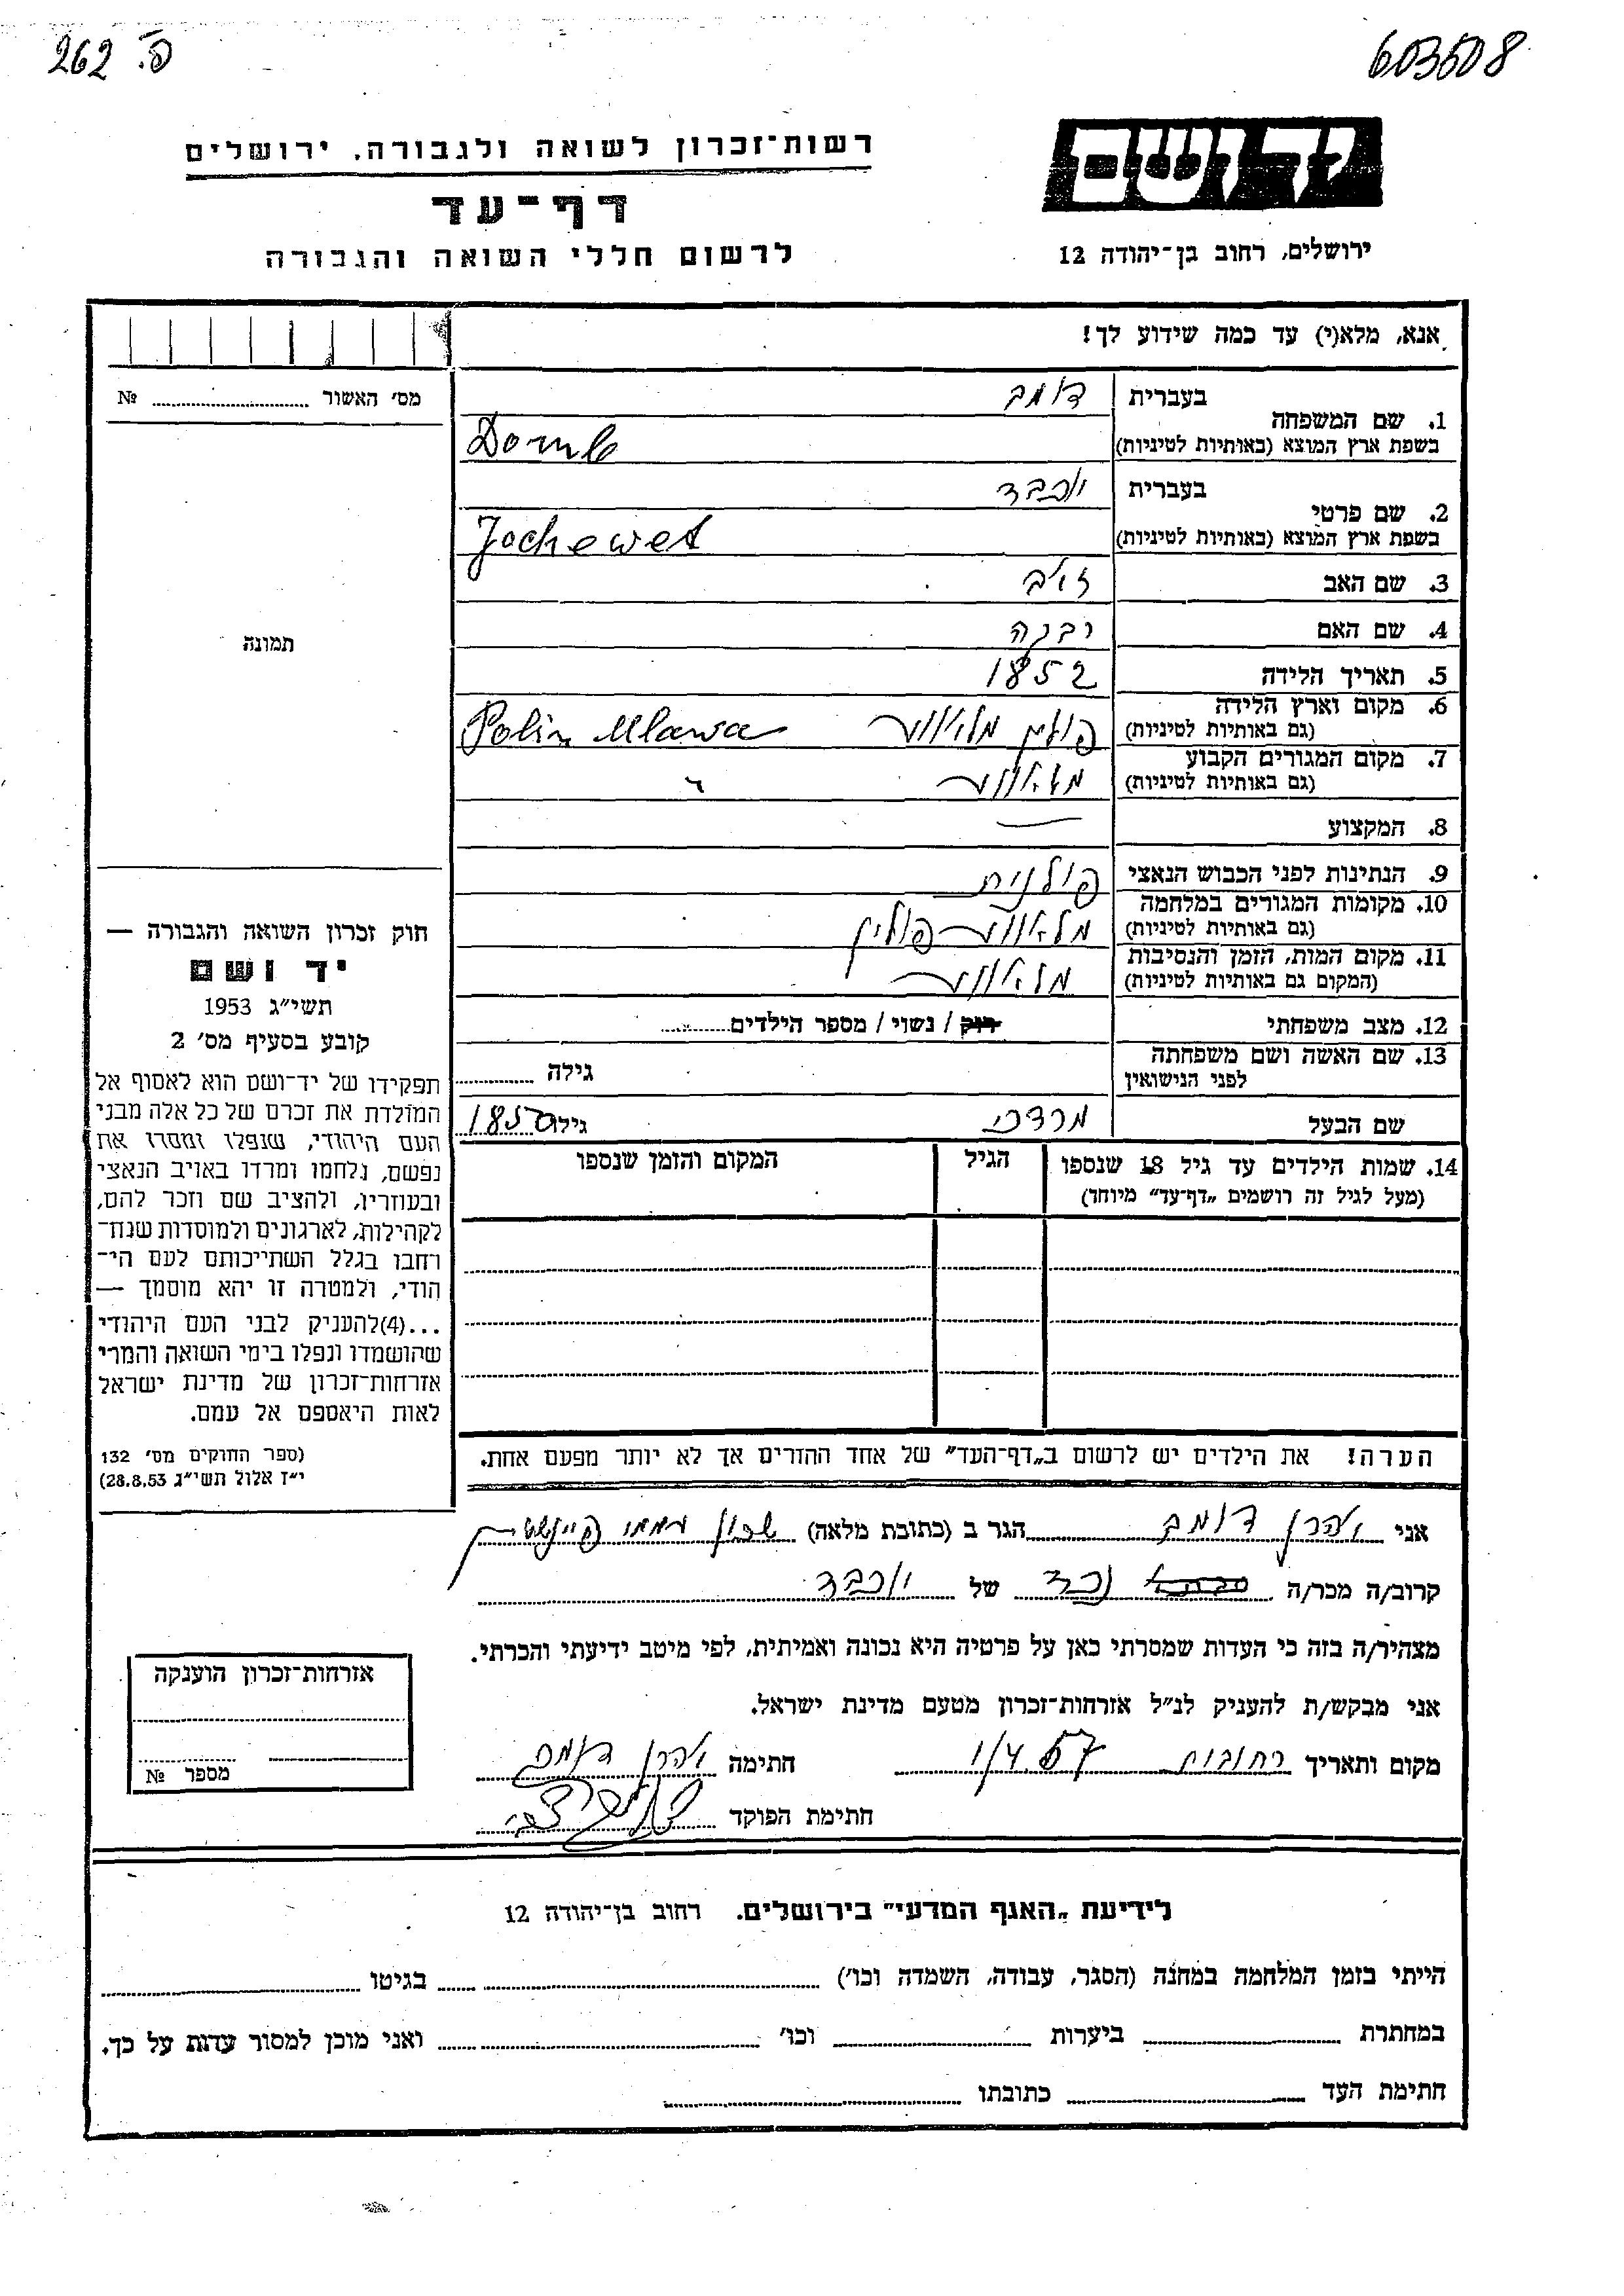 262 פ.
603508
יד ושם
ירושלים, רחוב בן־יהודה 12
רשות־זכרון לשואה ולגבורה, ירושלים
דף־עד
לרשום חללי השואה והגבורה
אנא, מלא(י) עד כמה שידוע לך!
מס׳ האשור № ........
תמונה
חוק זכרון השואה והגבורה —
יד ושם
תשי״ג 1953
קובע בסעיף מס׳ 2
תפקידו של יד־ושם הוא לאסוף אל
המולדת את זכרם של כל אלה מבני
העם היהודי, שנפלו ומסרו את
נפשם, נלחמו ומרדו באויב הנאצי
ובעוזריו, ולהציב שם וזכר להם,
לקהילות, לארגונים ולמוסדות שנח־
רבו בגלל השתייכותם לעם הי־
הודי, ולמטרה זו יהא מוסמך —
...(4)להעניק לבני העם היהודי
שהושמדו ונפלו בימי השואה והמרי
אזרחות־זכרון של מדינת ישראל
לאות היאספם אל עמם.
(ספר החוקים מס׳ 132
י״ז אלול תשי״ג 28.8.53)
1. שם המשפחה
בעברית דומב
בשפת ארץ המוצא (באותיות לטיניות) Domb
2. שם פרטי
בעברית יוכבד
בשפת ארץ המוצא (באותיות לטיניות) Jochewet
3. שם האב זאב
4. שם האם
5. תאריך הלידה 1852
6. מקום וארץ הלידה
(גם באותיות לטיניות) פולין Polin Mlawa
7. מקום המגורים הקבוע
(גם באותיות לטיניות) מלאווע
8. המקצוע —
9. הנתינות לפני הכבוש הנאצי פולנית
10. מקומות המגורים במלחמה
(גם באותיות לטיניות) מלאווע פולין
11. מקום המות, הזמן והנסיבות
(המקום גם באותיות לטיניות) מלאווע
12. מצב משפחתי רווק / נשוי / מספר הילדים........
13. שם האשה ושם משפחתה
לפני הנישואין גילה ........
שם הבעל מרדכי גילו 1850
14. שמות הילדים עד גיל 18 שנספו
(מעל לגיל זה רושמים „דף־עד״ מיוחד)
הגיל
המקום והזמן שנספו
הערה! את הילדים יש לרשום ב„דף־העד״ של אחד ההורים אך לא יותר מפעם אחת.
אני אהרן דומב הגר ב (כתובת מלאה) שכון
קרוב/ה מכר/ה נכד של יוכבד
מצהיר/ה בזה כי העדות שמסרתי כאן על פרטיה היא נכונה ואמיתית, לפי מיטב ידיעתי והכרתי.
אני מבקש/ת להעניק לנ״ל אזרחות־זכרון מטעם מדינת ישראל.
מקום ותאריך רחובות 1/4 57 חתימה אהרן דומב
חתימת הפוקד
אזרחות־זכרון הוענקה
מספר №
לידיעת „האגף המדעי״ בירושלים. רחוב בן־יהודה 12
הייתי בזמן המלחמה במחנה (הסגר, עבודה, השמדה וכו׳) ........ בגיטו ........
במחתרת ........ ביערות ........ וכו׳ ........ ואני מוכן למסור עדות על כך.
חתימת העד ........ כתובתו ........